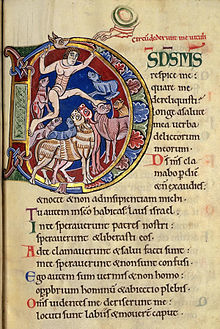 circu dederunt me uituli
DSDSMS
respice me:
quare me
dereliquisti:
longe a salute
mea uerba
delictorum
meorum.
Ds ms cla
mabo p die
& n exaudies:
& nocte & non ad insipientiam mihi.
Tu autem in sco habitas laus israel.
In te sperauerunt patres nostri:
sperauerunt & liberasti eos.
Ad te clamauerunt & salui facti sunt:
in te sperauerunt & non sunt confusi.
Ego autem sum uermis & non homo:
opprbrium hominum & abiectio plebis.
Oms uidentes me deriserunt me:
locuti sunt labiis & mouert caput.